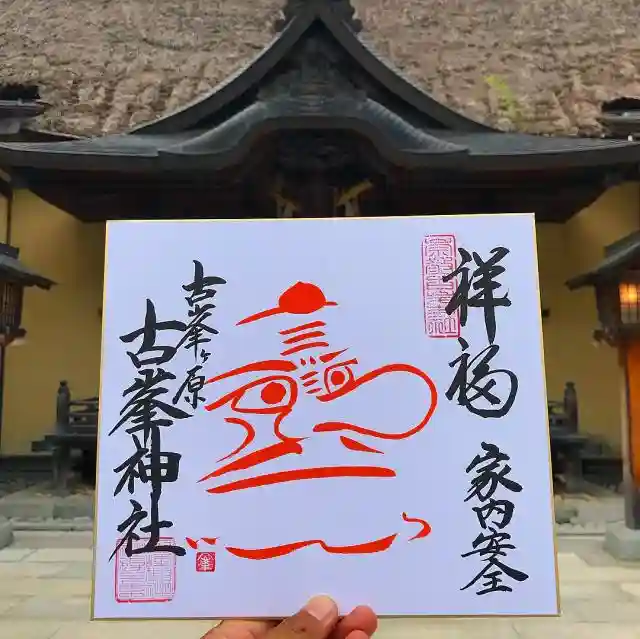 祥福
家内安全
古峯ヶ原
古峯神社